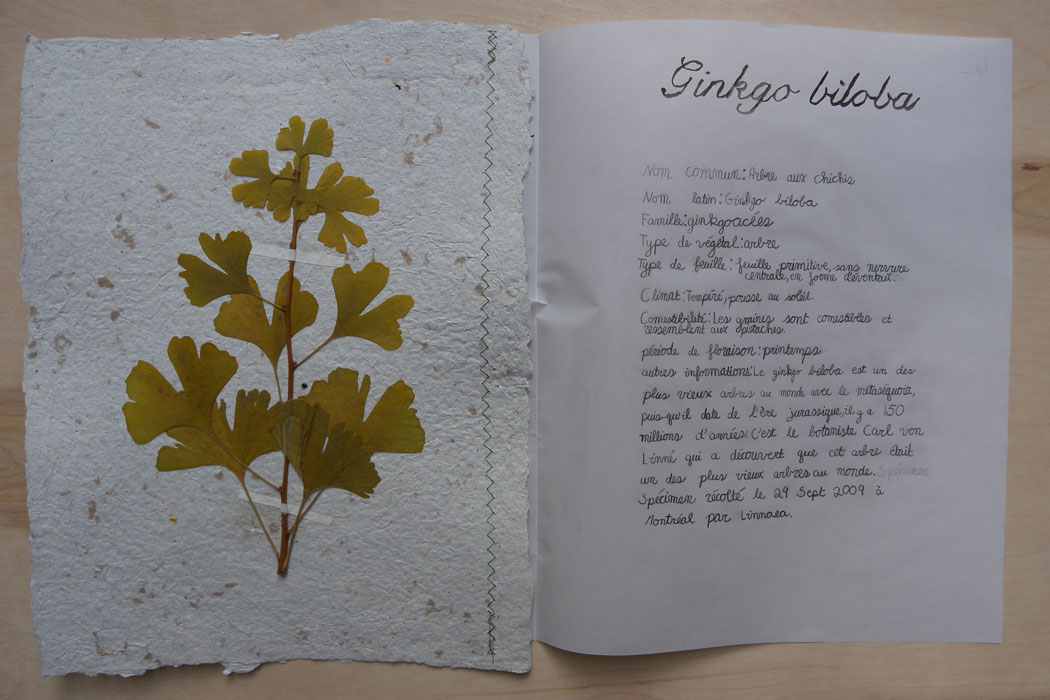 Ginkgo biloba
Nom commun: Arbre aux chichis
Nom latin: Ginkgo biloba
Famille: ginkgoacées
Type de végétal: arbre
Type de feuille: feuille primitive, sans nervure
centrale, en forme d'éventail.
Climat: Tempéré, pousse au soleil.
Comestibilité: Les graines sont comestibles et
ressemblent aux pistaches.
période de floraison: printemps
autres informations: Le ginkgo biloba est un des
plus vieux arbres au monde avec le métaséquoia,
puis-qu'il date de l'ère jurassique, il y a 150
millions d'années. C'est le botaniste Carl von
Linné qui a découvert que cet arbre était
un des plus vieux arbres au monde. Spécimen
Spécimen récolté le 29 Sept 2009 à
Montréal par Linnaea.